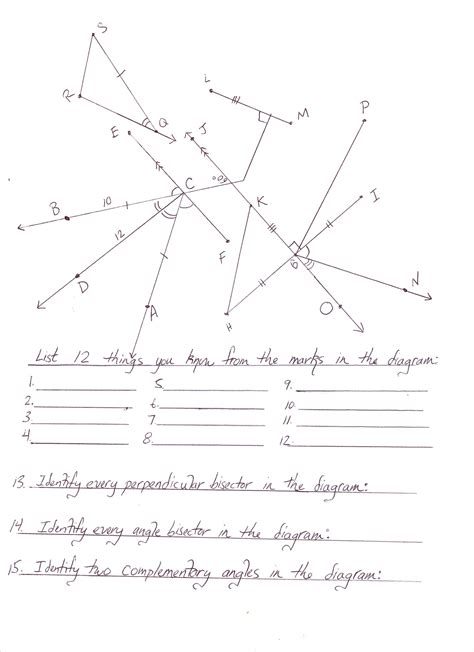 S
R
Q
E
J
L
M
P
C
B
10
12
D
A
F
K
I
H
O
N
List 12 things you know from the marks in the diagram:
1. 5. 9.
2. 6. 10.
3. 7. 11.
4. 8. 12.
13. Identify every perpendicular bisector in the diagram:
14. Identify every angle bisector in the diagram:
15. Identify two complementary angles in the diagram: